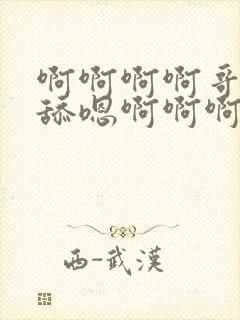 啊啊啊啊哥
舔嗯啊啊啊
西-武漢